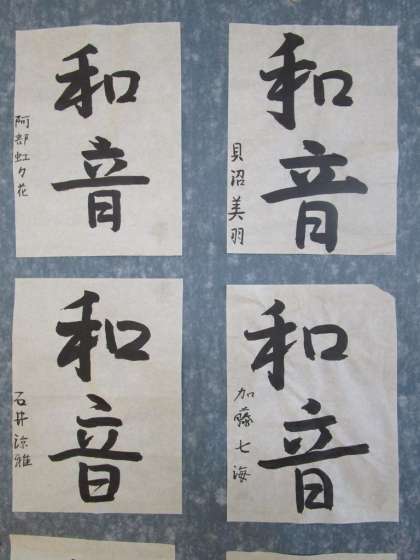 和音
阿部虹々花
和音
貝沼美羽
和音
石井涼雅
和音
加藤七海